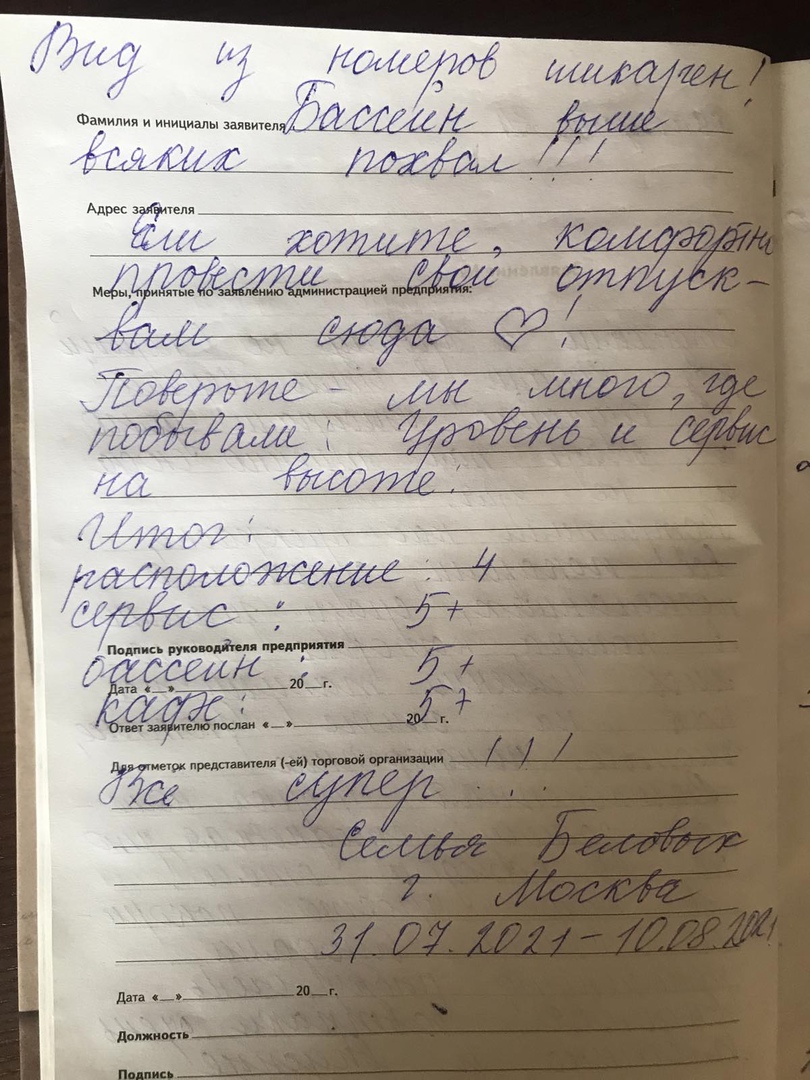 Вид из номеров шикарен!
Фамилия и инициалы заявителя Бассейн выше
всяких похвал!!!
Адрес заявителя
Если хотите, комфортно
провести свой отпуск –
Меры, принятые по заявлению администрацией предприятия:
вам сюда ♡!
Поверьте – мы много, где
побывали! Уровень и сервис
на высоте!
Итог:
расположение: 4
сервис: 5+
Подпись руководителя предприятия
бассейн: 5+
Дата «__» 20__г.
кафе: 5+
Ответ заявителю послан «__» 20__г.
Для отметок представителя (-ей) торговой организации
Всё супер!!!
Семья Беловых
г. Москва
31.07.2021 – 10.08.2021
Дата «__» 20__г.
Должность
Подпись